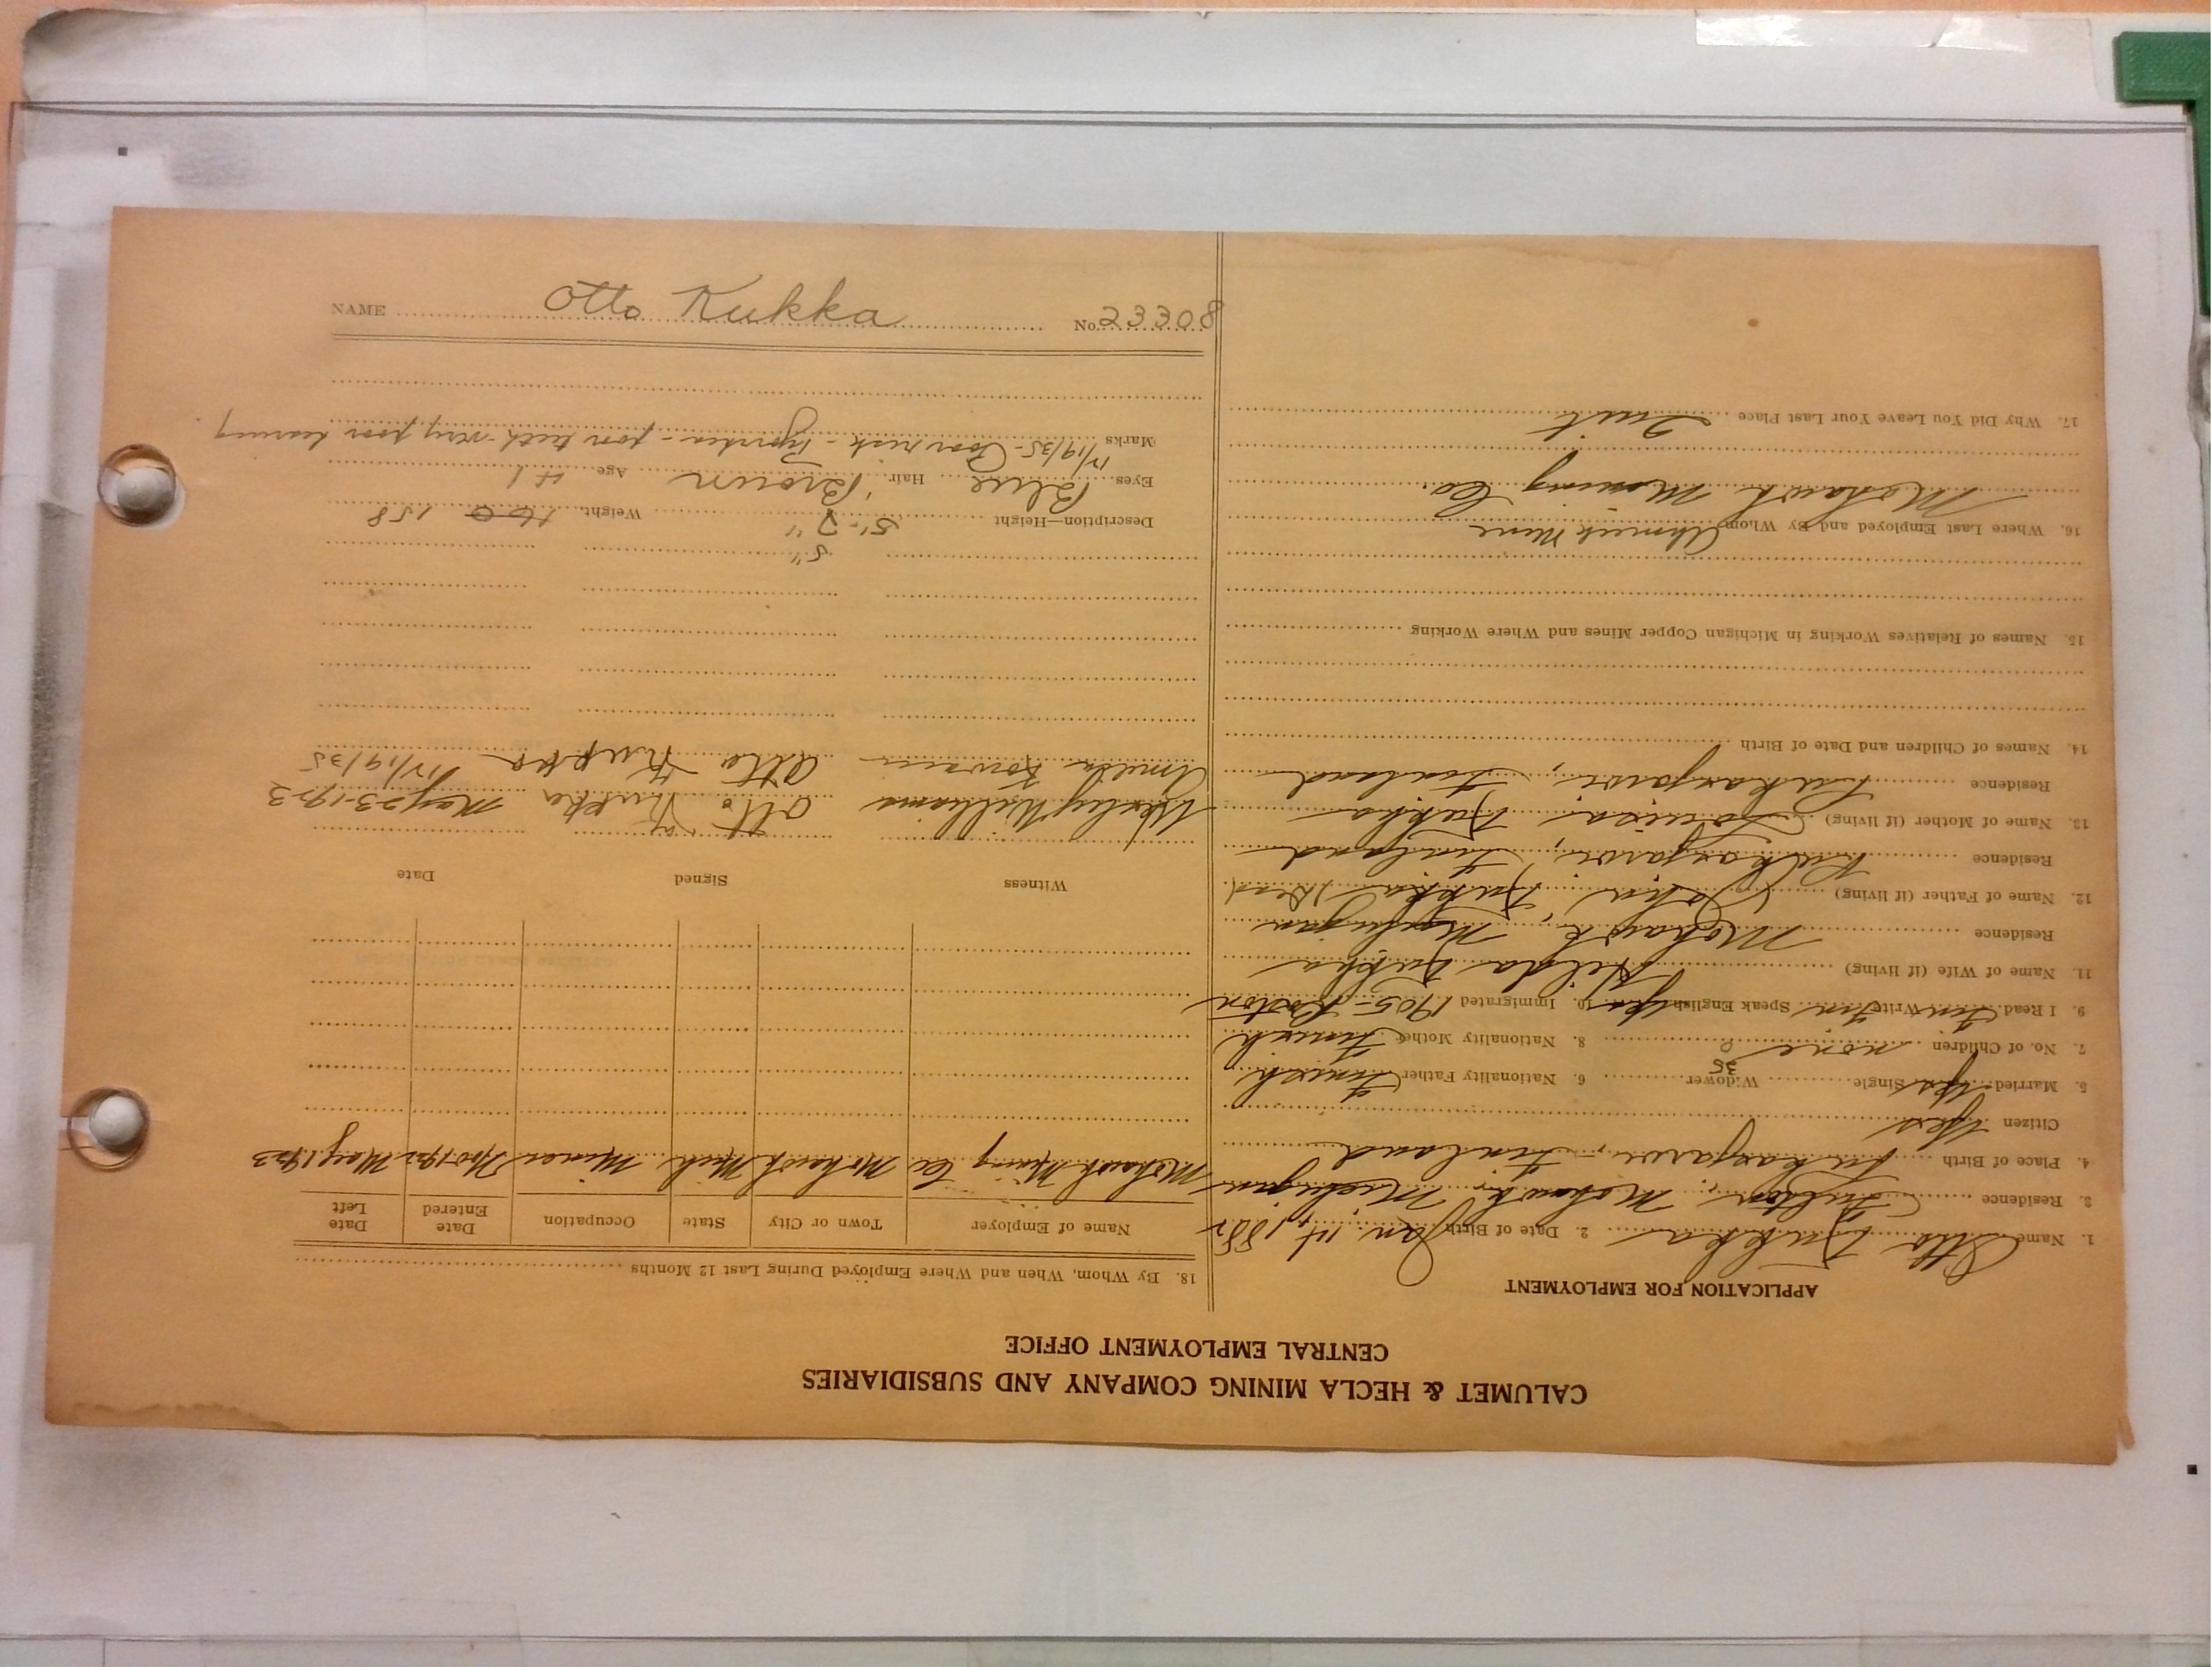 CALUMET & HECLA MINING COMPANY AND SUBSIDIARIES
CENTRAL EMPLOYMENT OFFICE
APPLICATION FOR EMPLOYMENT
1. Name Otto Kukka 2. Date of Birth Jan. 1st, 1882
3. Residence Fulton, Mohawk, Michigan
4. Place of Birth Finland
Citizen Yes
5. Married Yes Single Widower 35 6. Nationality Father Finnish
7. No. of Children none 0 8. Nationality Mother Finnish
9. I Read Fin Write Fin Speak English Yes 10. Immigrated 1905 - Boston
11. Name of Wife (if living) Hilda Kukka
Residence Mohawk, Michigan
12. Name of Father (if living) John Kukka (Dead)
Residence Finland
13. Name of Mother (if living) Louisa Kukka
Residence Finland
14. Names of Children and Date of Birth
15. Names of Relatives Working in Michigan Copper Mines and Where Working
16. Where Last Employed and By Whom Ahmeek Mine
Mohawk Mining Co.
17. Why Did You Leave Your Last Place Quit
18. By Whom, When and Where Employed During Last 12 Months
Name of Employer Town or City State Occupation Date Entered Date Left
Mohawk Mining Co. Mohawk Mich. Miner Nov 1922 May 1923
Witness Signed Date
Wesley Williams Otto Kukka May 23-1923
Otto Kukka 12/19/35
5"
Description—Height 5'-7" Weight 160 158
Eyes Blue Hair Brown Age 41
Marks 12/19/35 - Poor risk - - poor teeth - very poor hearing
NAME Otto Kukka No. 23308